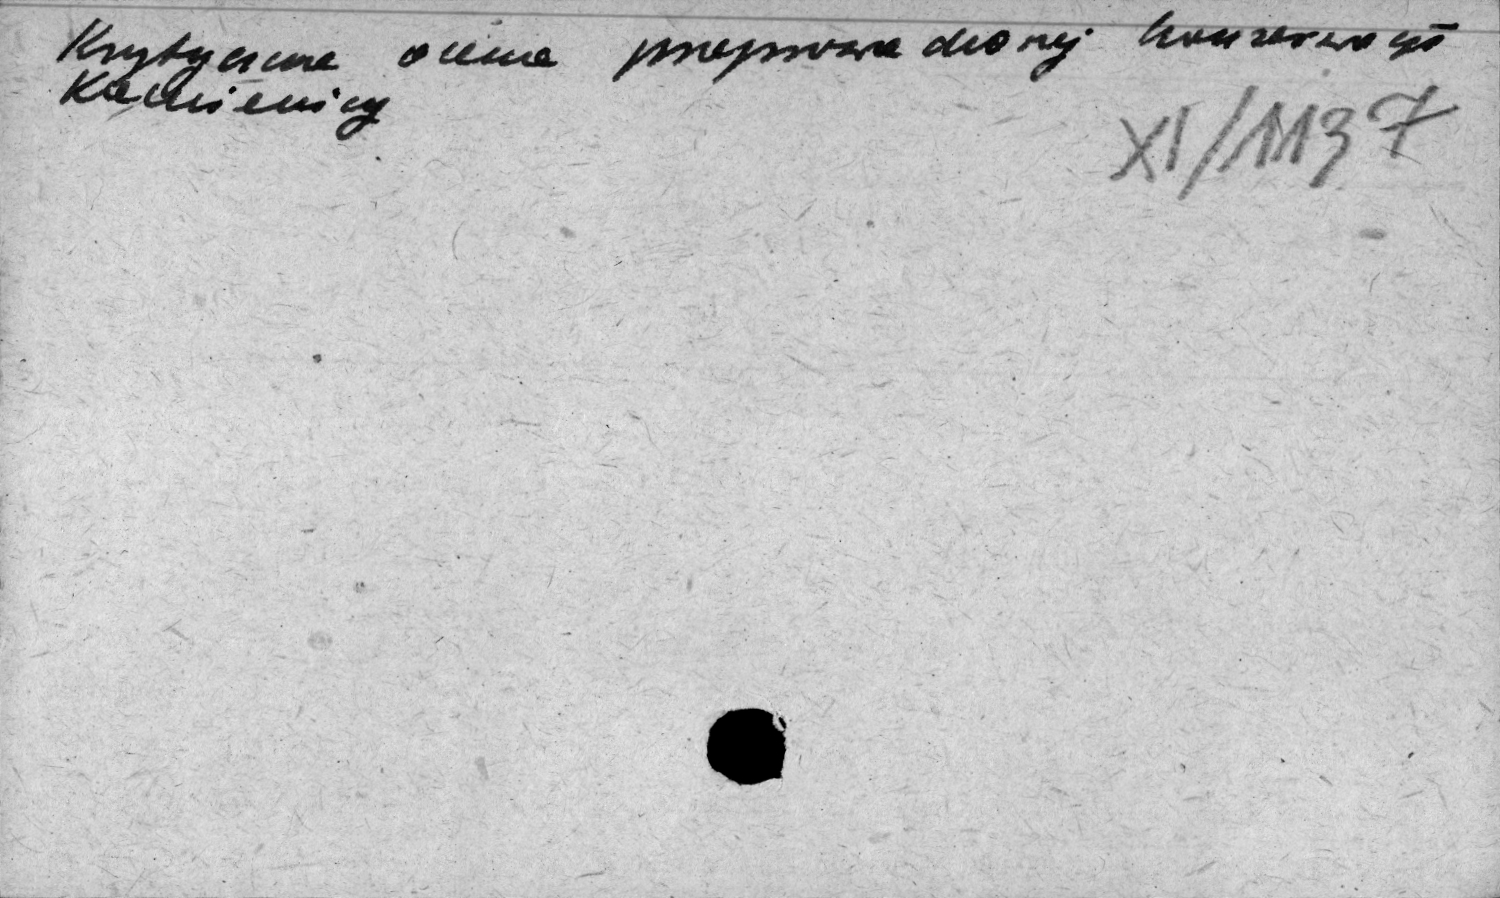 Krytyczna ocena przeprowadzonej konserwacji
Kamienicy
XI/1137